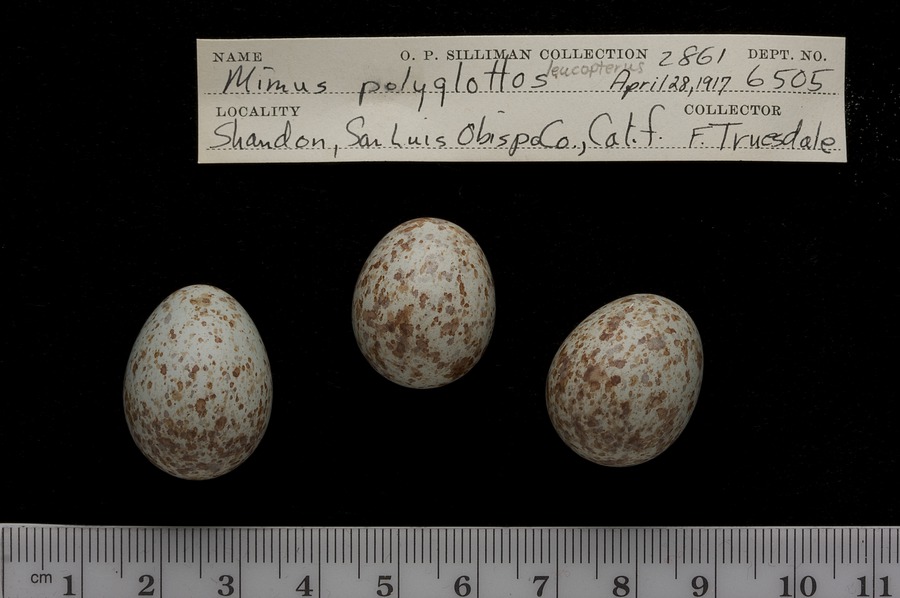 NAME O. P. SILLIMAN COLLECTION 2861 DEPT. NO.
Mimus polyglottos leucopterus April 28, 1917 6505
LOCALITY COLLECTOR
Shandon, San Luis Obispo Co., Calif. F. Truesdale
cm 1 2 3 4 5 6 7 8 9 10 11